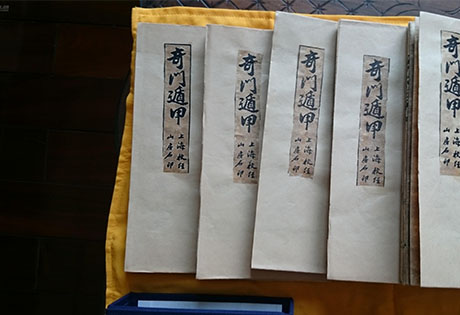 奇门遁甲
上海校经
山房石印
奇门遁甲
上海校经
山房石印
奇门遁甲
上海校经
山房石印
奇门遁甲
上海校经
山房石印